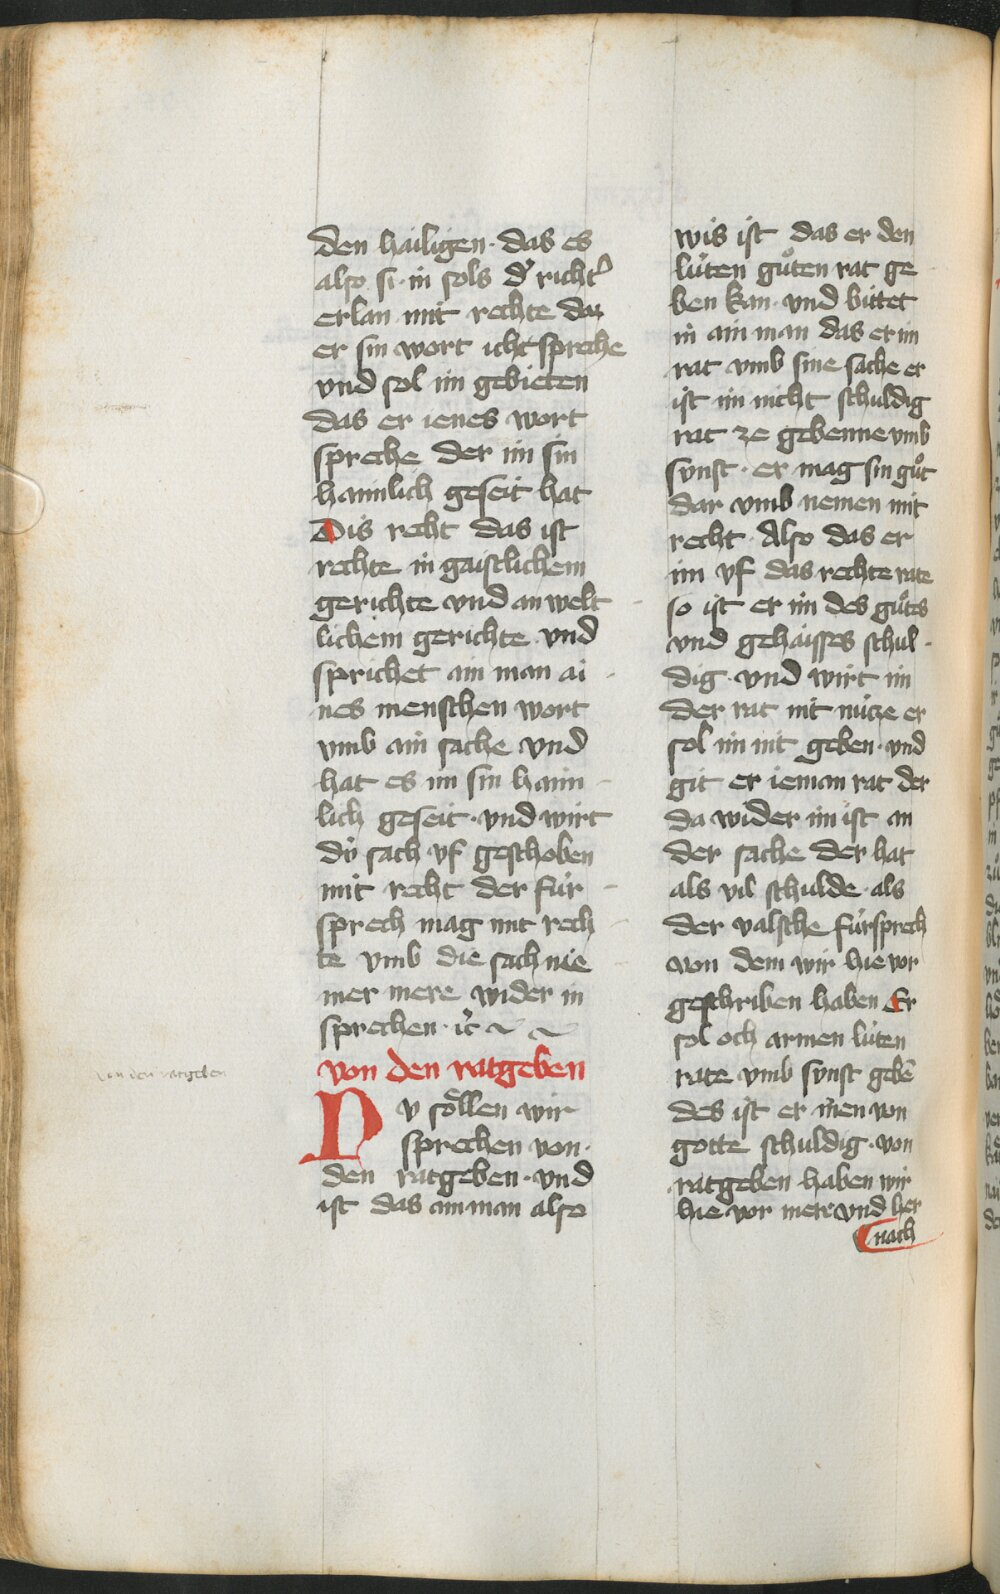 den hailigen · das es
also si · in sols d' richt'
erlan mit rechte daz
er sin wort icht spreche
vnd sol im gebieten
das er ienes wort
spreche der im sin
haimlich geseit hat
Dis recht das ist
rechte in gaistlichem
gerichte vnd an welt
lichem gerichte vnd
sprichet ain man ai
nes menschen wort
vmb ain sache vnd
hat es im sin haim
lich geseit · vnd wirt
dú sach vf geschoben
mit recht der fúr
sprech mag mit rech
te vmb die sach nie
mer mere wider in
sprechen · ic̃
von den ratgeben
von den ratgeben
Nv soͤllen wir
sprechen von ·
den ratgeben · vnd
ist das ain man also
wis ist das er den
lúten guͦten rat ge
ben kan · vnd bittet
in ain man das er im
rat vmb sine sache er
ist im nicht schuldig
rat ze gebenne vmb
synst · er mag sin guͦt
dar vmb nemen mit
recht · Also das er
im vf das rechte rate
so ist er im des guͦtes
vnd gehaisses schul
dig · vnd wirt im
der rat nit nútze er
sol im nit geben · vnd
git er ieman rat der
da wider im ist an
der sache der hat
als vil schulde · als
der valsche fúrsprech
von dem wir hie vor
geschriben haben Er
sol och armen lúten
rate vmb synst gebē
des ist er in̄en von
gotte schuldig · von
ratgeben haben wir
hie vor mere vnd her
nach